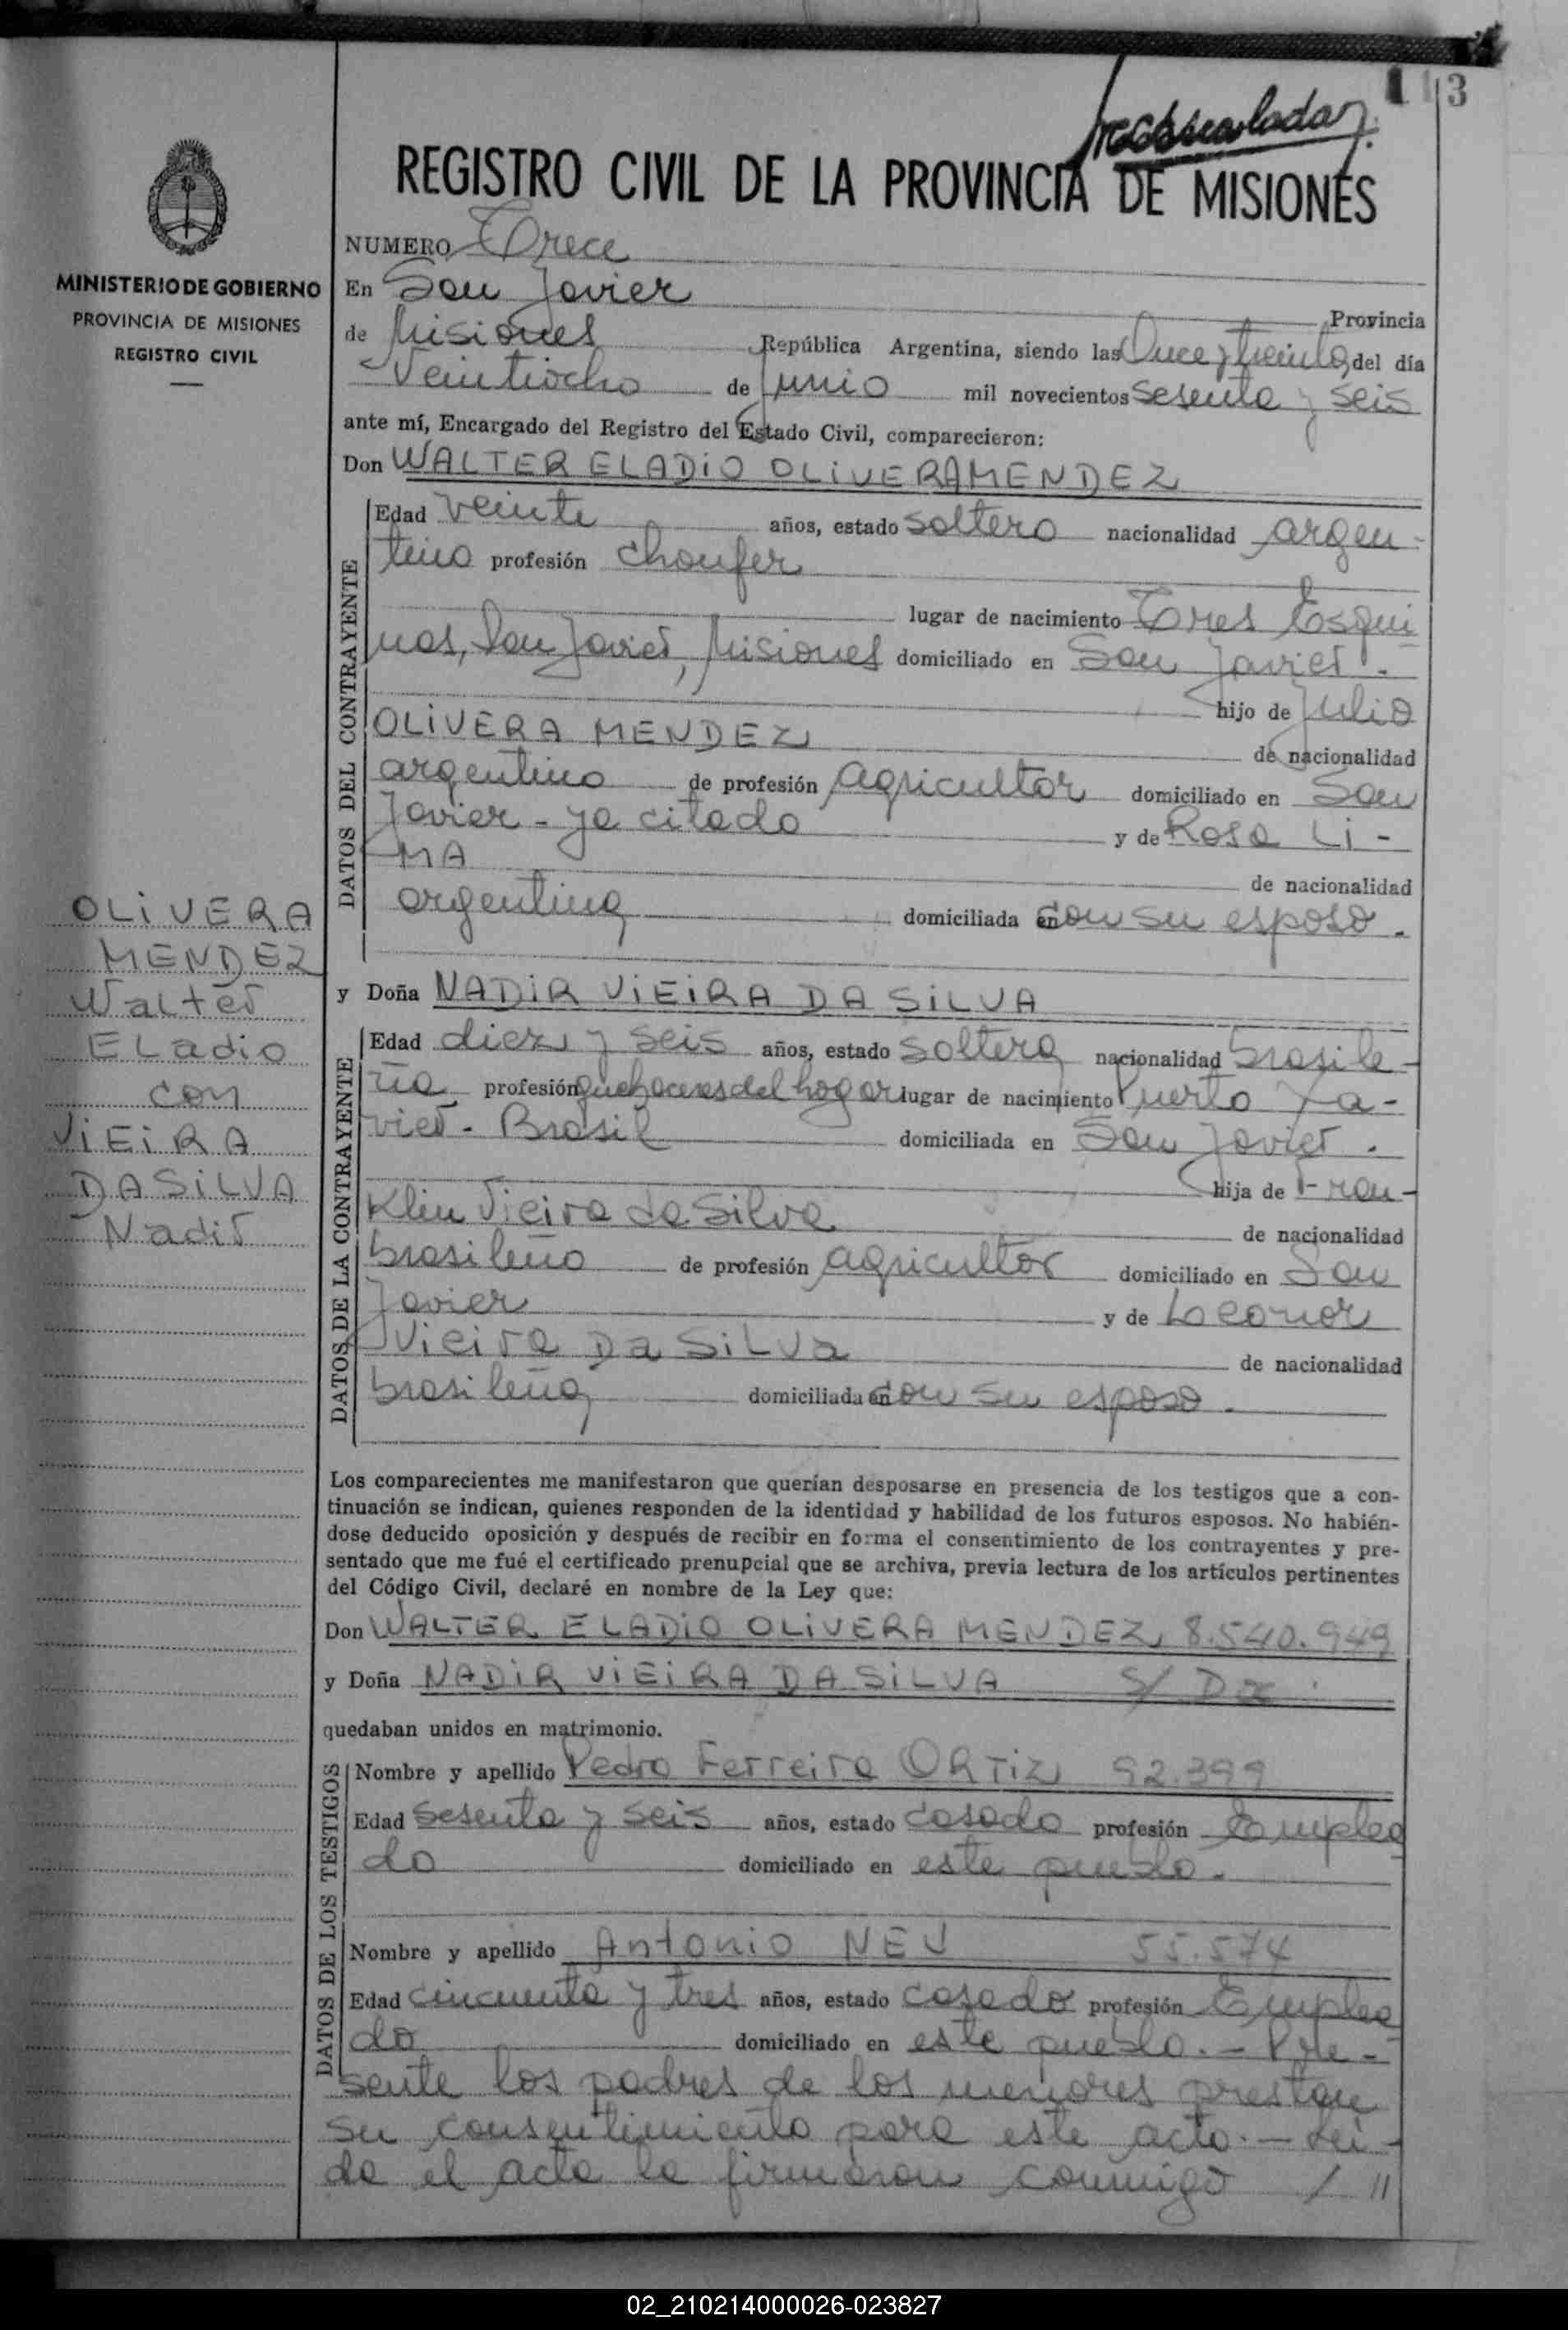 113
MINISTERIO DE GOBIERNO
PROVINCIA DE MISIONES
REGISTRO CIVIL
OLIVERA
MENDEZ
Walter
Eladio
con
VIEIRA
DA SILVA
Nadir
REGISTRO CIVIL DE LA PROVINCIA DE MISIONES
NUMERO Trece
En San Javier Provincia
de Misiones República Argentina, siendo las Once y treinta, del día
Veintiocho de junio mil novecientos sesenta y seis
ante mí, Encargado del Registro del Estado Civil, comparecieron:
Don WALTER ELADIO OLIVERA MENDEZ
DATOS DEL CONTRAYENTE
Edad veinte años, estado soltero nacionalidad argen-
tino profesión choufer
lugar de nacimiento Tres Esqui
nas, San Javier, Misiones domiciliado en San Javier.
hijo de Julio
OLIVERA MENDEZ de nacionalidad
argentino de profesión agricultor domiciliado en San
Javier - ya citado y de Rosa Li-
MA de nacionalidad
argentina domiciliada en con su esposo.
y Doña NADIR VIEIRA DA SILVA
DATOS DE LA CONTRAYENTE
Edad diez y seis años, estado soltera nacionalidad brasile-
ña profesión quehaceres del hogar lugar de nacimiento Puerto Xa-
vier - Brasil domiciliada en San Javier.
hija de Fran-
klin Vieira da Silva de nacionalidad
brasileño de profesión agricultor domiciliado en San
Javier y de Leonor
Vieira Da Silva de nacionalidad
brasileña domiciliada en con su esposo.
Los comparecientes me manifestaron que querían desposarse en presencia de los testigos que a con-
tinuación se indican, quienes responden de la identidad y habilidad de los futuros esposos. No habién-
dose deducido oposición y después de recibir en forma el consentimiento de los contrayentes y pre-
sentado que me fué el certificado prenupcial que se archiva, previa lectura de los artículos pertinentes
del Código Civil, declaré en nombre de la Ley que:
Don WALTER ELADIO OLIVERA MENDEZ 8.540.949
y Doña NADIR VIEIRA DA SILVA
quedaban unidos en matrimonio.
DATOS DE LOS TESTIGOS
Nombre y apellido Pedro Ferreira ORTIZ 92.399
Edad sesenta y seis años, estado casado profesión Emplea
do domiciliado en este pueblo.
Nombre y apellido Antonio NEU 55.574
Edad cincuenta y tres años, estado casado profesión Emplea
do domiciliado en este pueblo. - Pre-
sente los padres de los menores prestan
su consentimiento para este acto. - Lei-
da el acta la firmaron conmigo / //
02_210214000026-023827